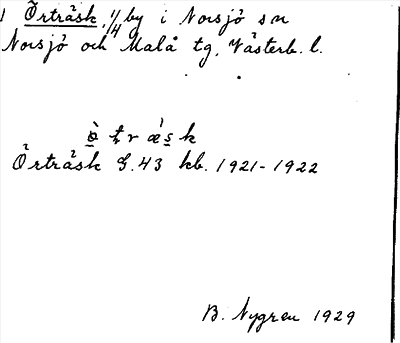 1 Örträsk, 1/4 by i Norsjö sn
Norsjö och Malå tg, Västerb. l.
ö̀ t r æ̀ s k
Örträsk G.43 kb. 1921-1922
B. Nygren 1929